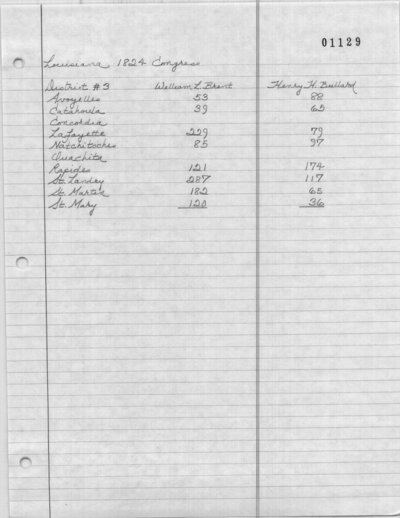 01129
Louisiana 1824 Congress
District #3 William L. Brent Henry H. Bullard
Avoyelles 53 88
Catahoula 39 65
Concordia
LaFayette 229 79
Natchitoches 85 97
Ouachita
Rapides 121 174
St. Landry 287 117
St. Martin 182 65
St. Mary 120 36